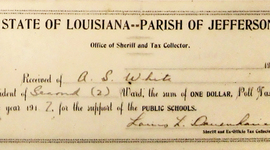 STATE OF LOUISIANA--PARISH OF JEFFERSO
Office of Sheriff and Tax Collector.
Received of A. S. White
dent of Second (2) Ward, the sum of ONE DOLLAR, Poll Tax
year 1917, for the support of the PUBLIC SCHOOLS.
Louis L.
Sheriff and Ex-Officio Tax Col